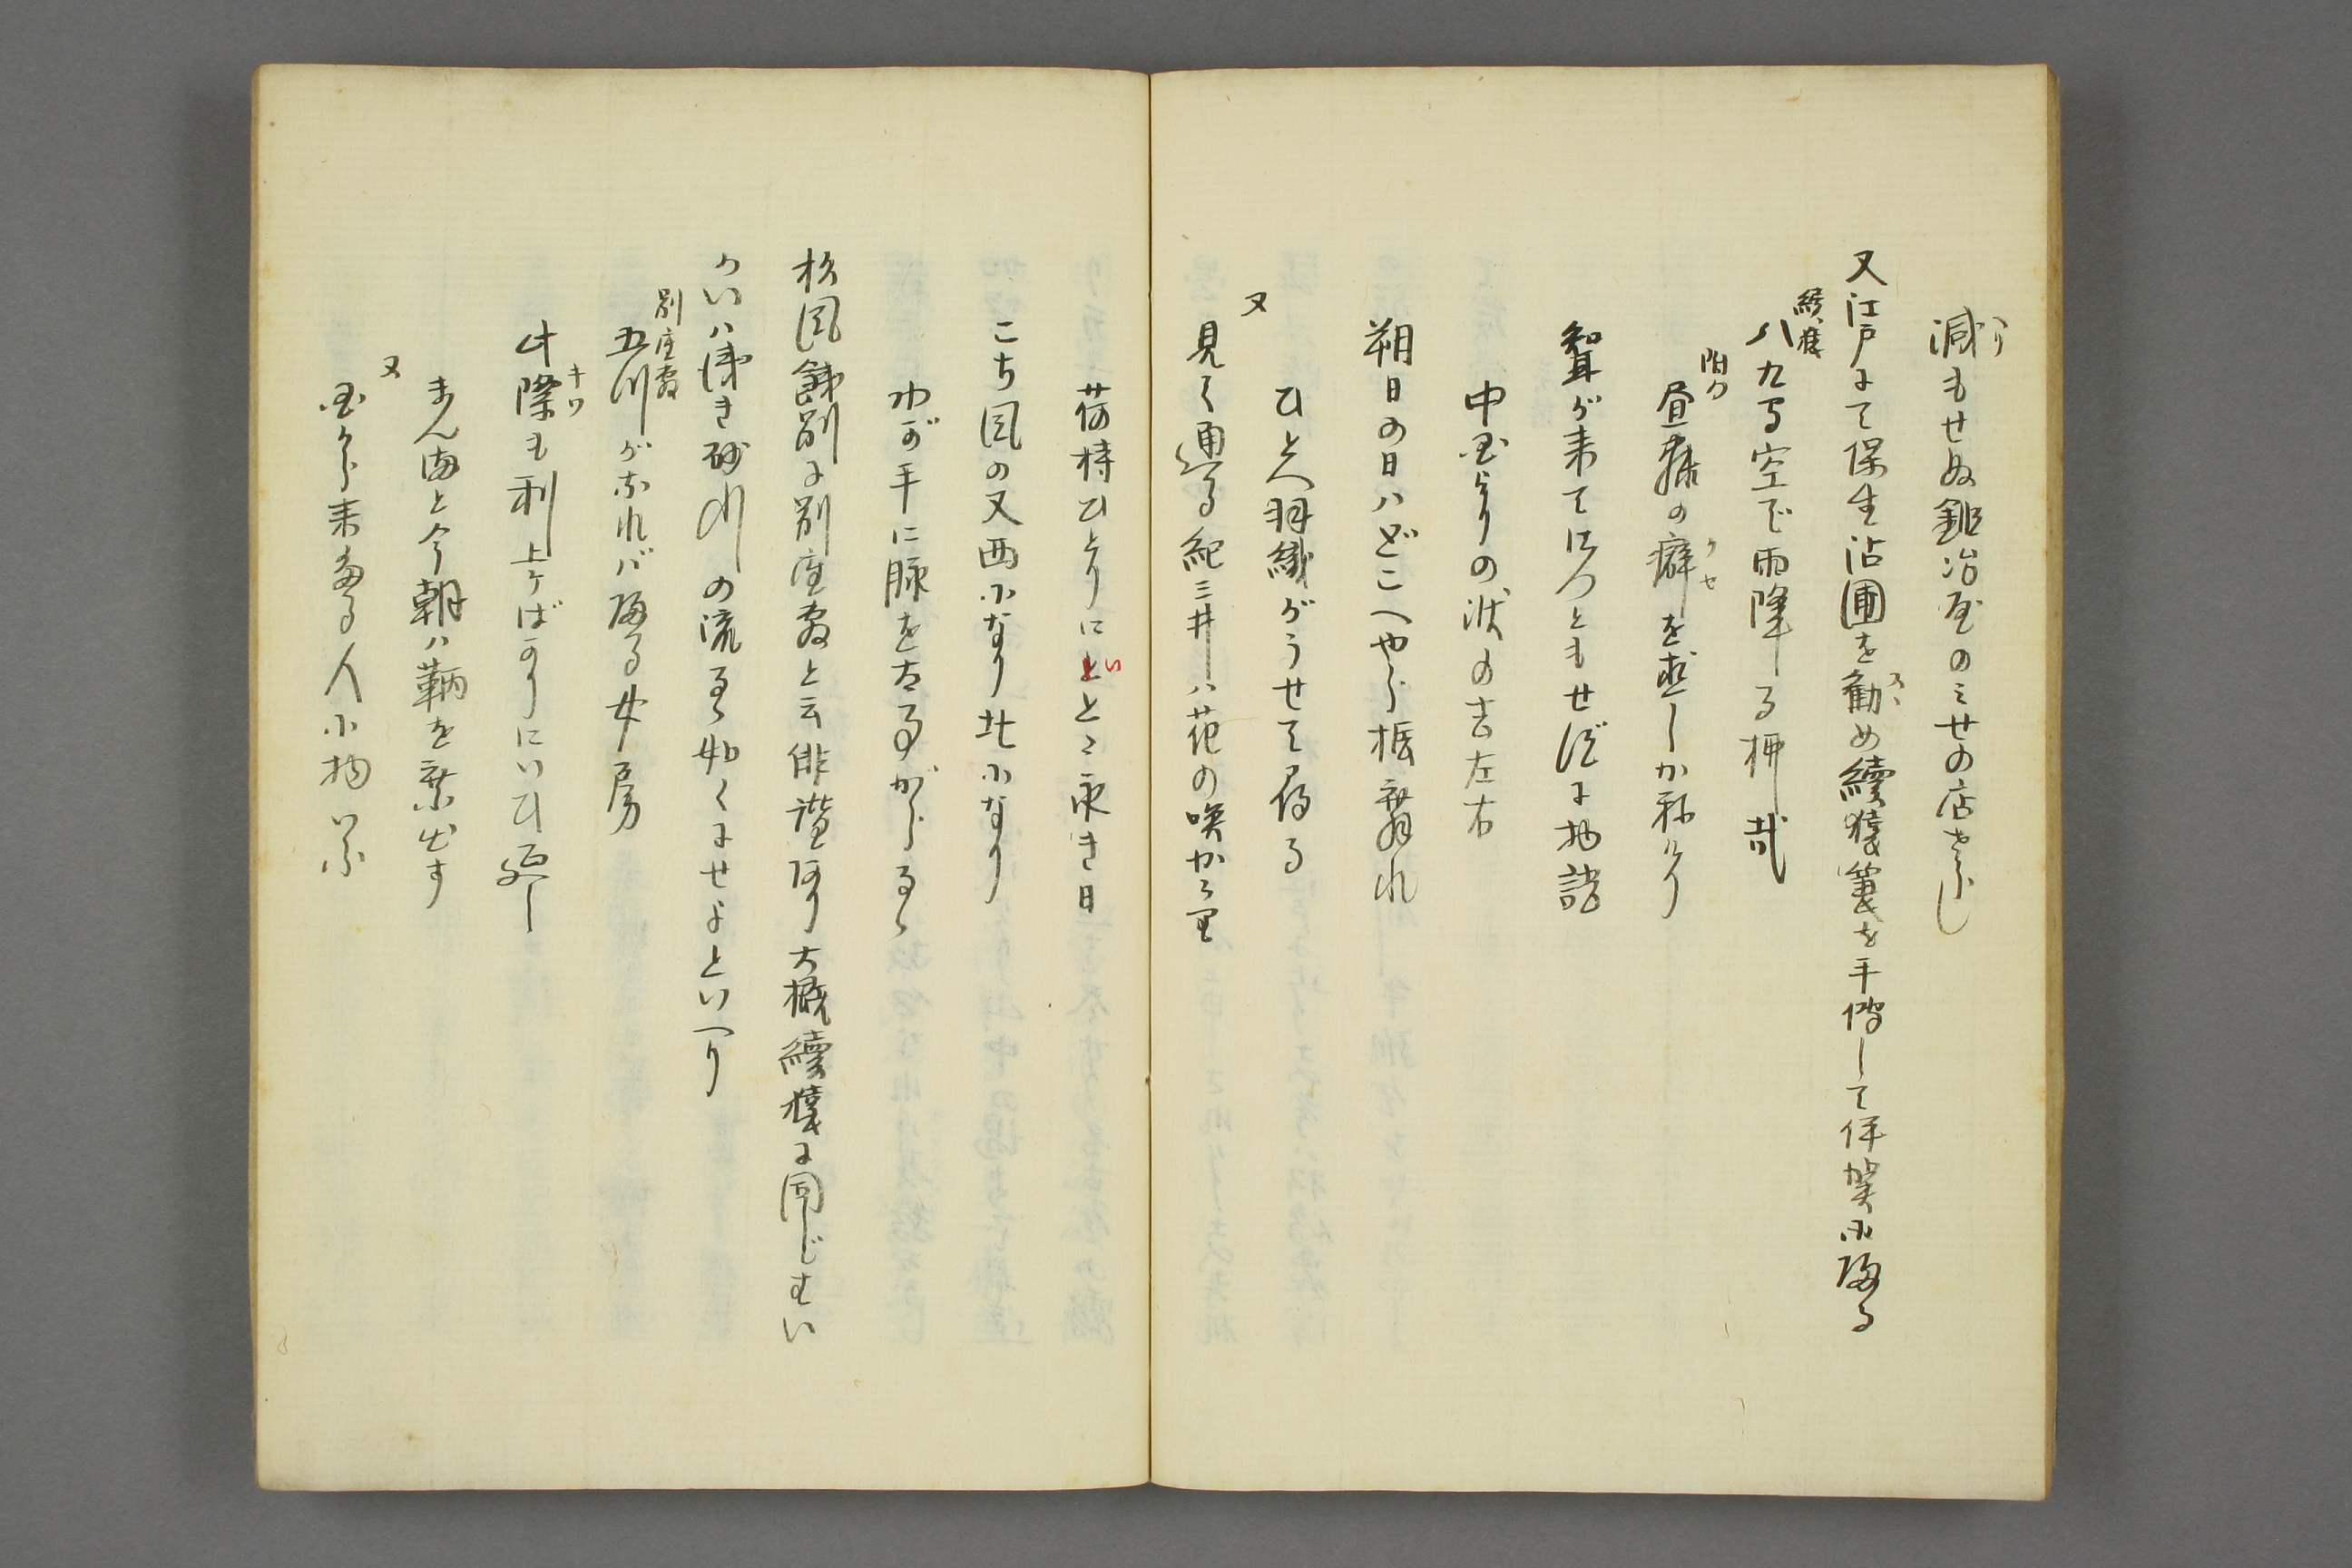 減もせぬ鍛冶屋のみせの店ざらし
又江戸にて保生沾圃を勧め続猿蓑を手伝して伊賀に帰る
続猿
八九間空で雨降る柳哉
附句
昼寐の癖を直しかねけり
聟が来てにつともせずに物語
中国よりの状の吉左右
朔日の日はどこへやら振舞れ
ひとへ羽織がうせて尋る
又
見て通る紀三井は花の咲かゝり
荷持ひとりにいとゞ永き日
こち風の又西になり北になり
わが手に脉を大事がらるゝ
杉風餞別に別座敷と云俳諧有り大概続猿に同じせい
かいは浅き砂川の流るゝ如くにせよといへり
別座敷
五つがなれば帰る女房
此際も利上ケばかりにいひ延し
まんまと今朝は鞆を乗出す
又
国から来たる人に物いふ